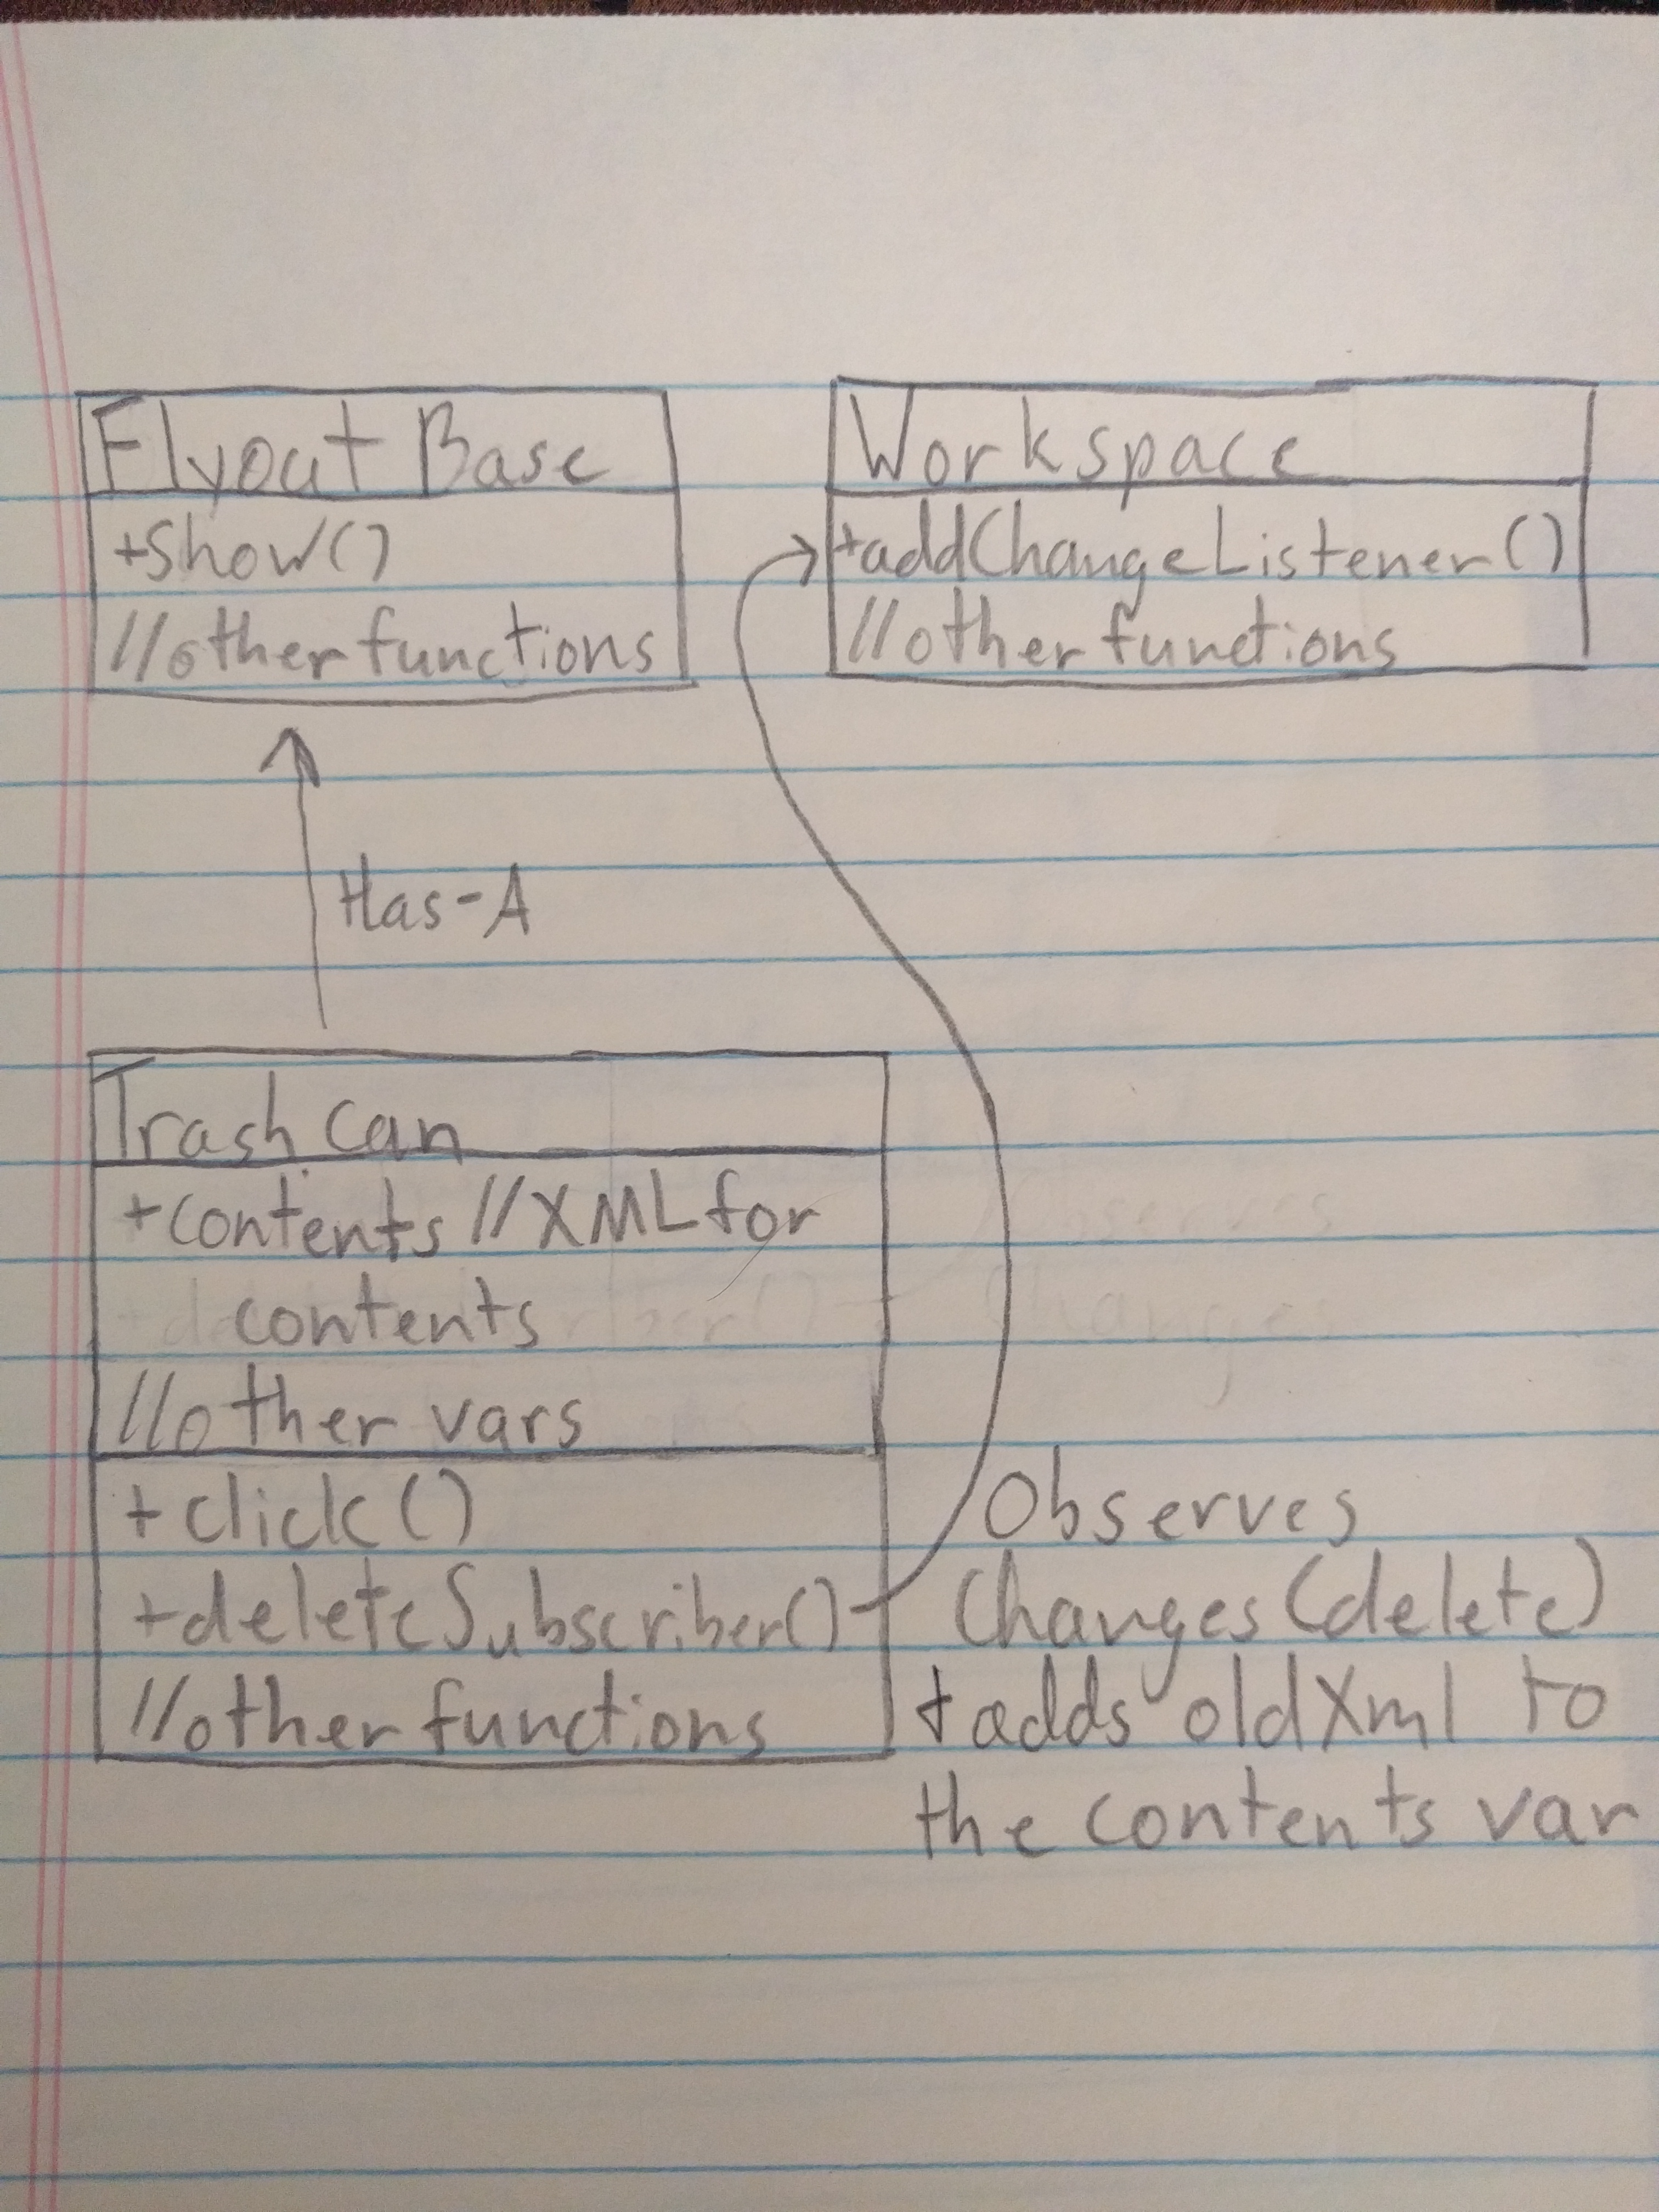 Flyout Base
+Show()
//other functions
Workspace
+addChangeListener()
//other functions
Has-A
Trash can
+contents //XML for
contents
//other vars
+click()
+deleteSubscriber()
//other functions
Observes
Changes (delete)
+ adds oldXml to
the contents var